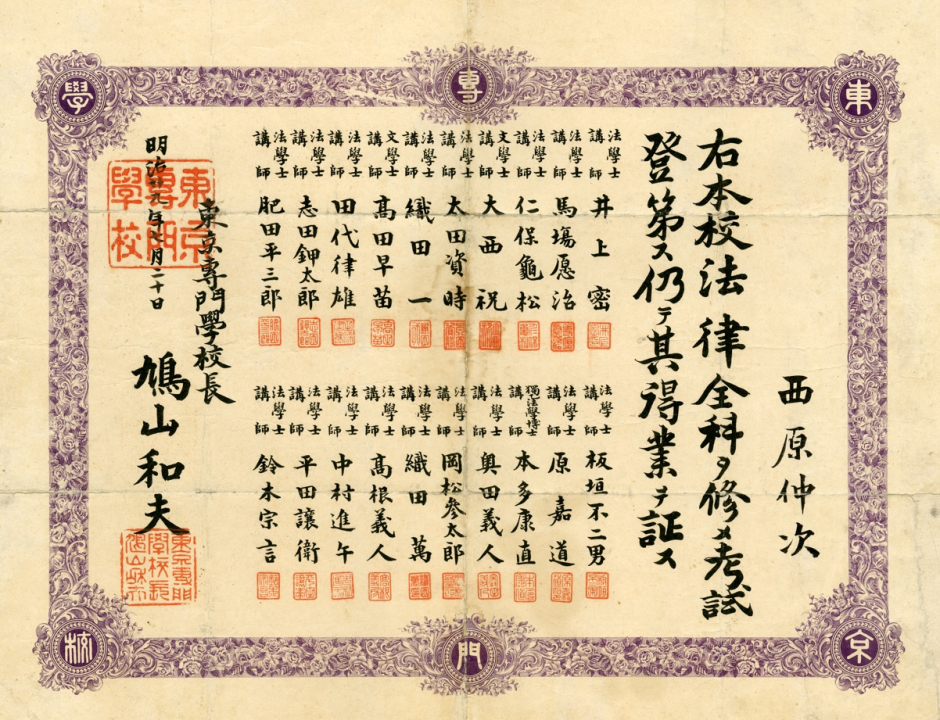 東
京
專
門
學
校
西原仲次
右本校法律全科ヲ修メ考試
登第ス仍テ其得業ヲ証ス
法學士
講師
井上密
法學士
講師
馬場愿治
法學士
講師
仁保龜松
文學士
講師
大西祝
法學士
講師
太田資時
法學士
講師
織田一
文學士
講師
高田早苗
法學士
講師
田代律雄
法學士
講師
志田鉀太郎
法學士
講師
肥田平三郎
法學士
講師
板垣不二男
法學士
講師
原嘉道
獨法學博士
講師
本多康直
法學士
講師
奥田義人
法學士
講師
岡松參太郎
法學士
講師
織田萬
法學士
講師
高根義人
法學士
講師
中村進午
法學士
講師
平田讓衛
法學士
講師
鈴木宗言
東京專門學校長
鳩山和夫
明治廿九年七月二十日
東京
專門
學校
東京專門
學校長
鳩山和夫